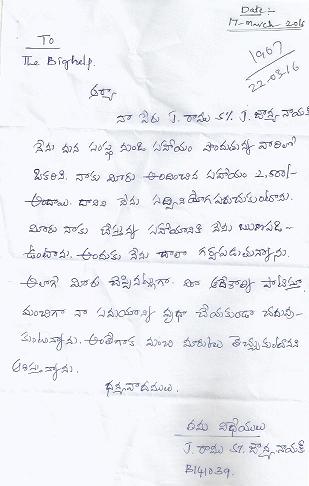 Date :-
17-march-2016
To
The Bighelp.
1967
22-03-16
ఆర్యా
నా పేరు J. రాము S/o J. చౌన్య నాయక్
నేను మన సంస్థ నుండి సహాయం పొందుతున్న వారిలో
ఒకరిని. నాకు మీరు అందించిన సహాయం 2,500/-
అందాయి. దానిని నేను సద్వినియోగపరుచుకుంటాను.
మీరు నాకు చేస్తున్న సహాయానికి నేను ఋణపడి
ఉంటాను. అందుకు నేను చాలా గర్వపడుతున్నాను.
అలాగే మీరు చెప్పినట్లుగా మీ ఆదేశాల్ని పాటిస్తూ
మంచిగా నా సమయాన్ని వృథా చేయకుండా చదువు-
కుంటున్నాను. అంతేగాక మంచి మార్కులు తెచ్చుకుంటానని
ఆశిస్తున్నాను.
ధన్యవాదములు.
తమ విధేయులు
J. రాము S/o చౌన్య నాయక్
B141039.